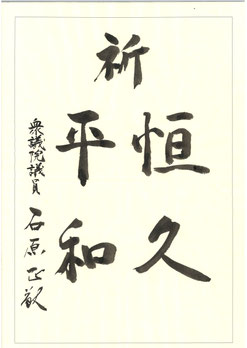 祈
恒久
平和
衆議院議員
石原正敬